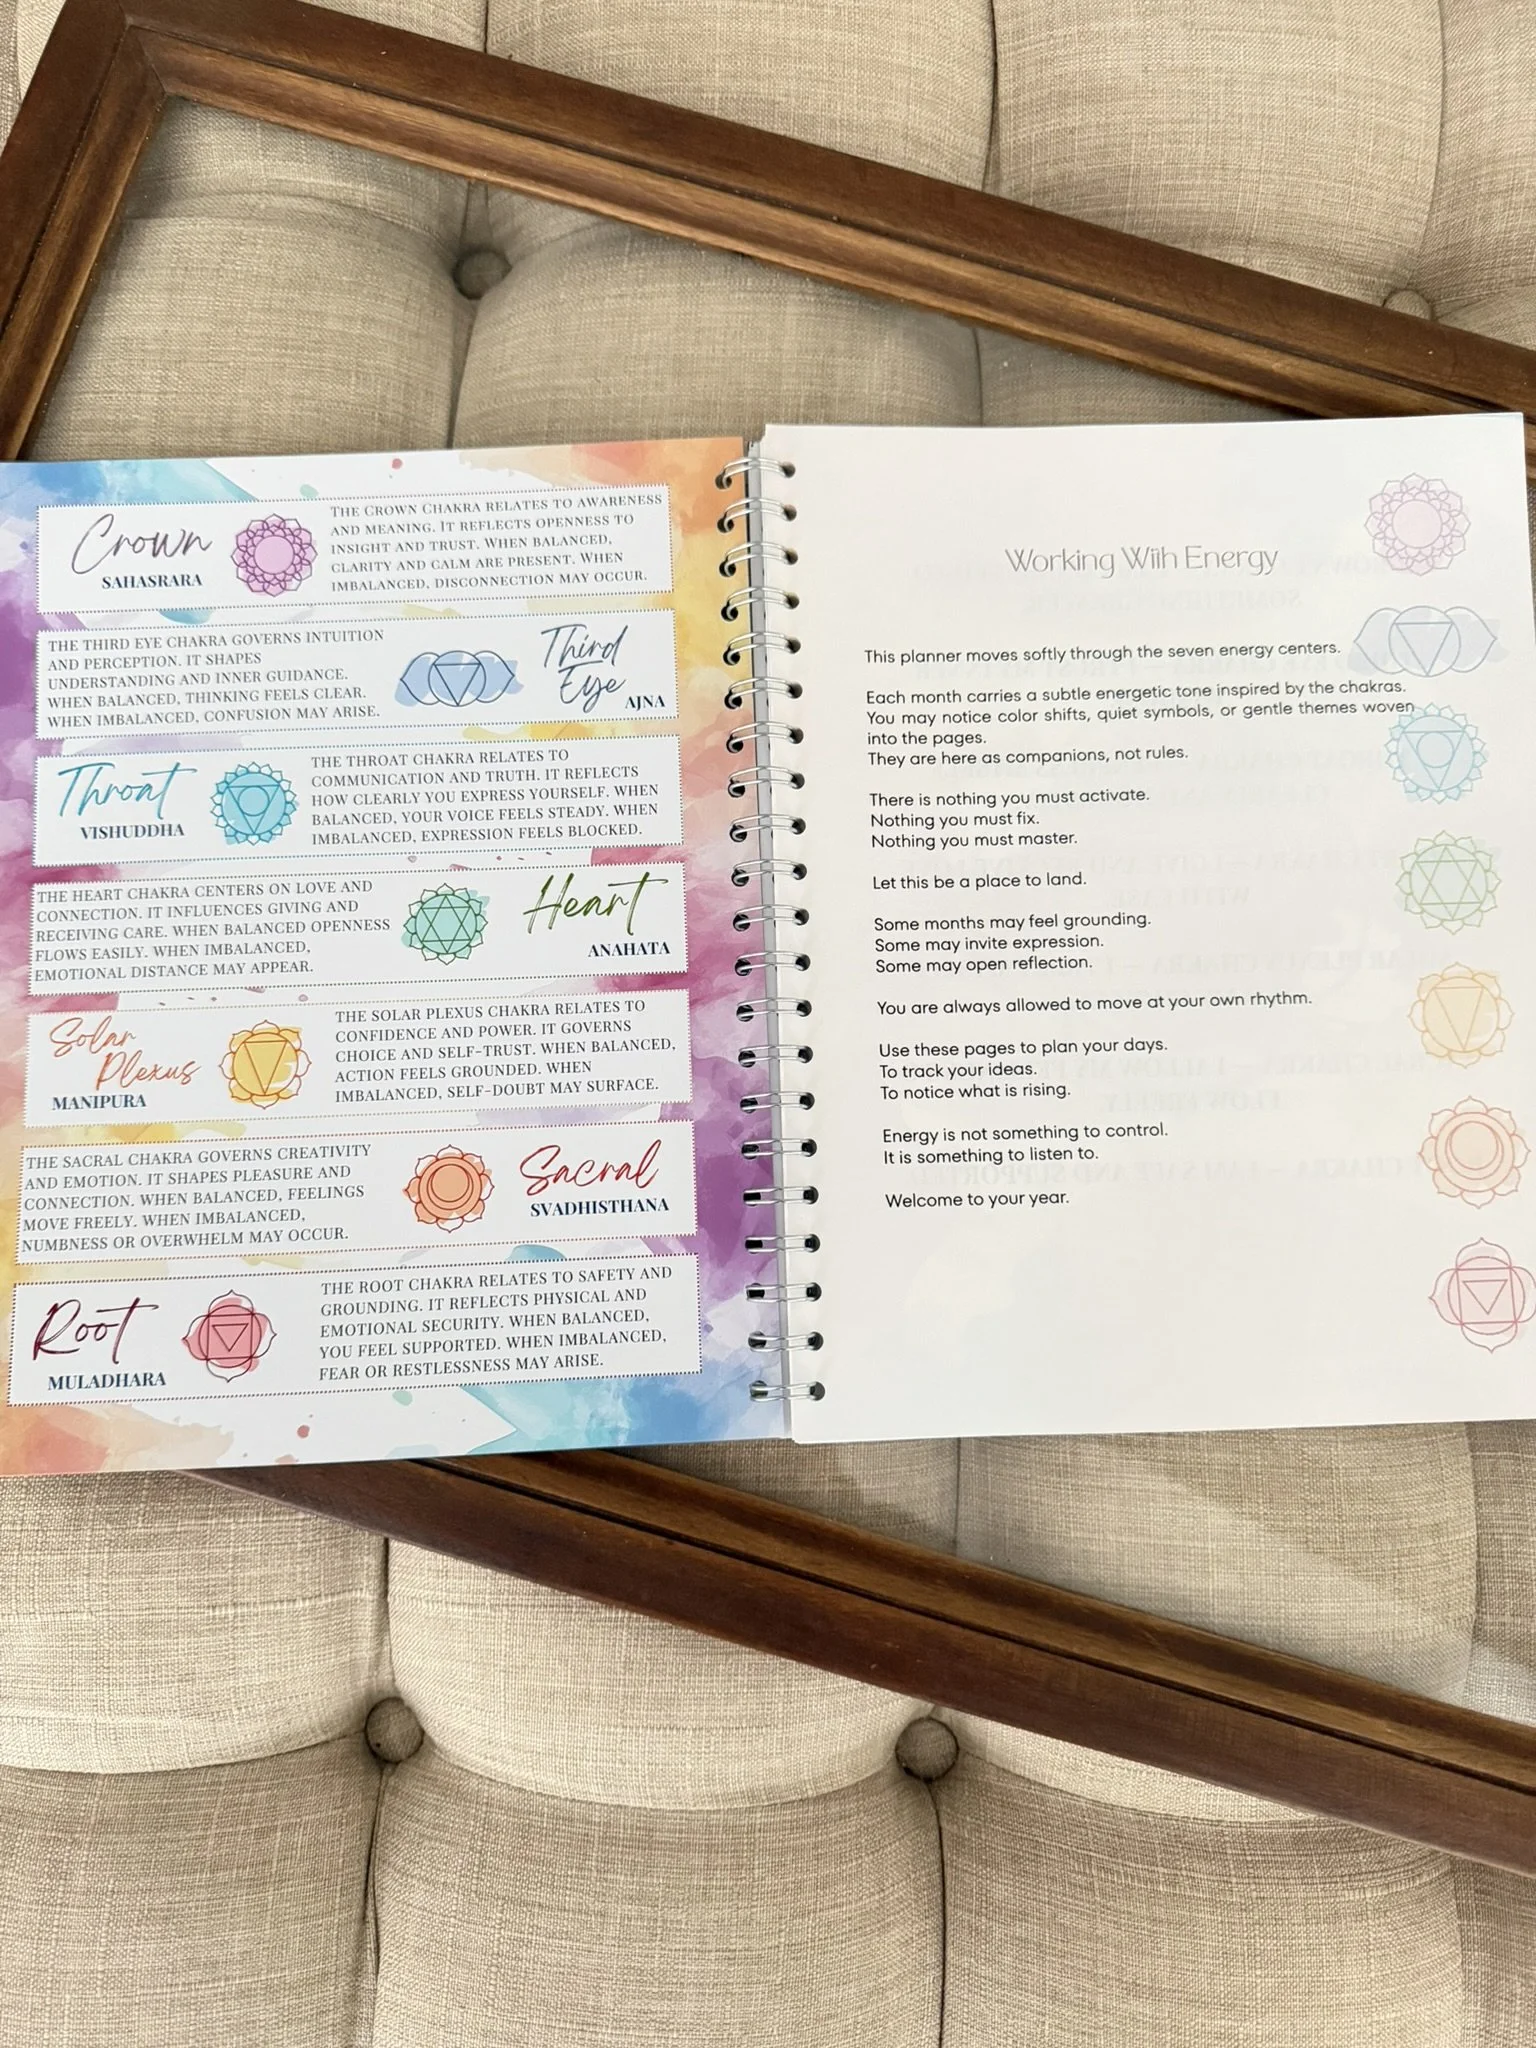 Crown
SAHASRARA
THE CROWN CHAKRA RELATES TO AWARENESS
AND MEANING. IT REFLECTS OPENNESS TO
INSIGHT AND TRUST. WHEN BALANCED,
CLARITY AND CALM ARE PRESENT. WHEN
IMBALANCED, DISCONNECTION MAY OCCUR.
THE THIRD EYE CHAKRA GOVERNS INTUITION
AND PERCEPTION. IT SHAPES
UNDERSTANDING AND INNER GUIDANCE.
WHEN BALANCED, THINKING FEELS CLEAR.
WHEN IMBALANCED, CONFUSION MAY ARISE.
Third
Eye
AJNA
Throat
VISHUDDHA
THE THROAT CHAKRA RELATES TO
COMMUNICATION AND TRUTH. IT REFLECTS
HOW CLEARLY YOU EXPRESS YOURSELF. WHEN
BALANCED, YOUR VOICE FEELS STEADY. WHEN
IMBALANCED, EXPRESSION FEELS BLOCKED.
THE HEART CHAKRA CENTERS ON LOVE AND
CONNECTION. IT INFLUENCES GIVING AND
RECEIVING CARE. WHEN BALANCED OPENNESS
FLOWS EASILY. WHEN IMBALANCED,
EMOTIONAL DISTANCE MAY APPEAR.
Heart
ANAHATA
Solar
Plexus
MANIPURA
THE SOLAR PLEXUS CHAKRA RELATES TO
CONFIDENCE AND POWER. IT GOVERNS
CHOICE AND SELF-TRUST. WHEN BALANCED,
ACTION FEELS GROUNDED. WHEN
IMBALANCED, SELF-DOUBT MAY SURFACE.
THE SACRAL CHAKRA GOVERNS CREATIVITY
AND EMOTION. IT SHAPES PLEASURE AND
CONNECTION. WHEN BALANCED, FEELINGS
MOVE FREELY. WHEN IMBALANCED,
NUMBNESS OR OVERWHELM MAY OCCUR.
Sacral
SVADHISTHANA
Root
MULADHARA
THE ROOT CHAKRA RELATES TO SAFETY AND
GROUNDING. IT REFLECTS PHYSICAL AND
EMOTIONAL SECURITY. WHEN BALANCED,
YOU FEEL SUPPORTED. WHEN IMBALANCED,
FEAR OR RESTLESSNESS MAY ARISE.
Working With Energy
This planner moves softly through the seven energy centers.
Each month carries a subtle energetic tone inspired by the chakras.
You may notice color shifts, quiet symbols, or gentle themes woven
into the pages.
They are here as companions, not rules.
There is nothing you must activate.
Nothing you must fix.
Nothing you must master.
Let this be a place to land.
Some months may feel grounding.
Some may invite expression.
Some may open reflection.
You are always allowed to move at your own rhythm.
Use these pages to plan your days.
To track your ideas.
To notice what is rising.
Energy is not something to control.
It is something to listen to.
Welcome to your year.